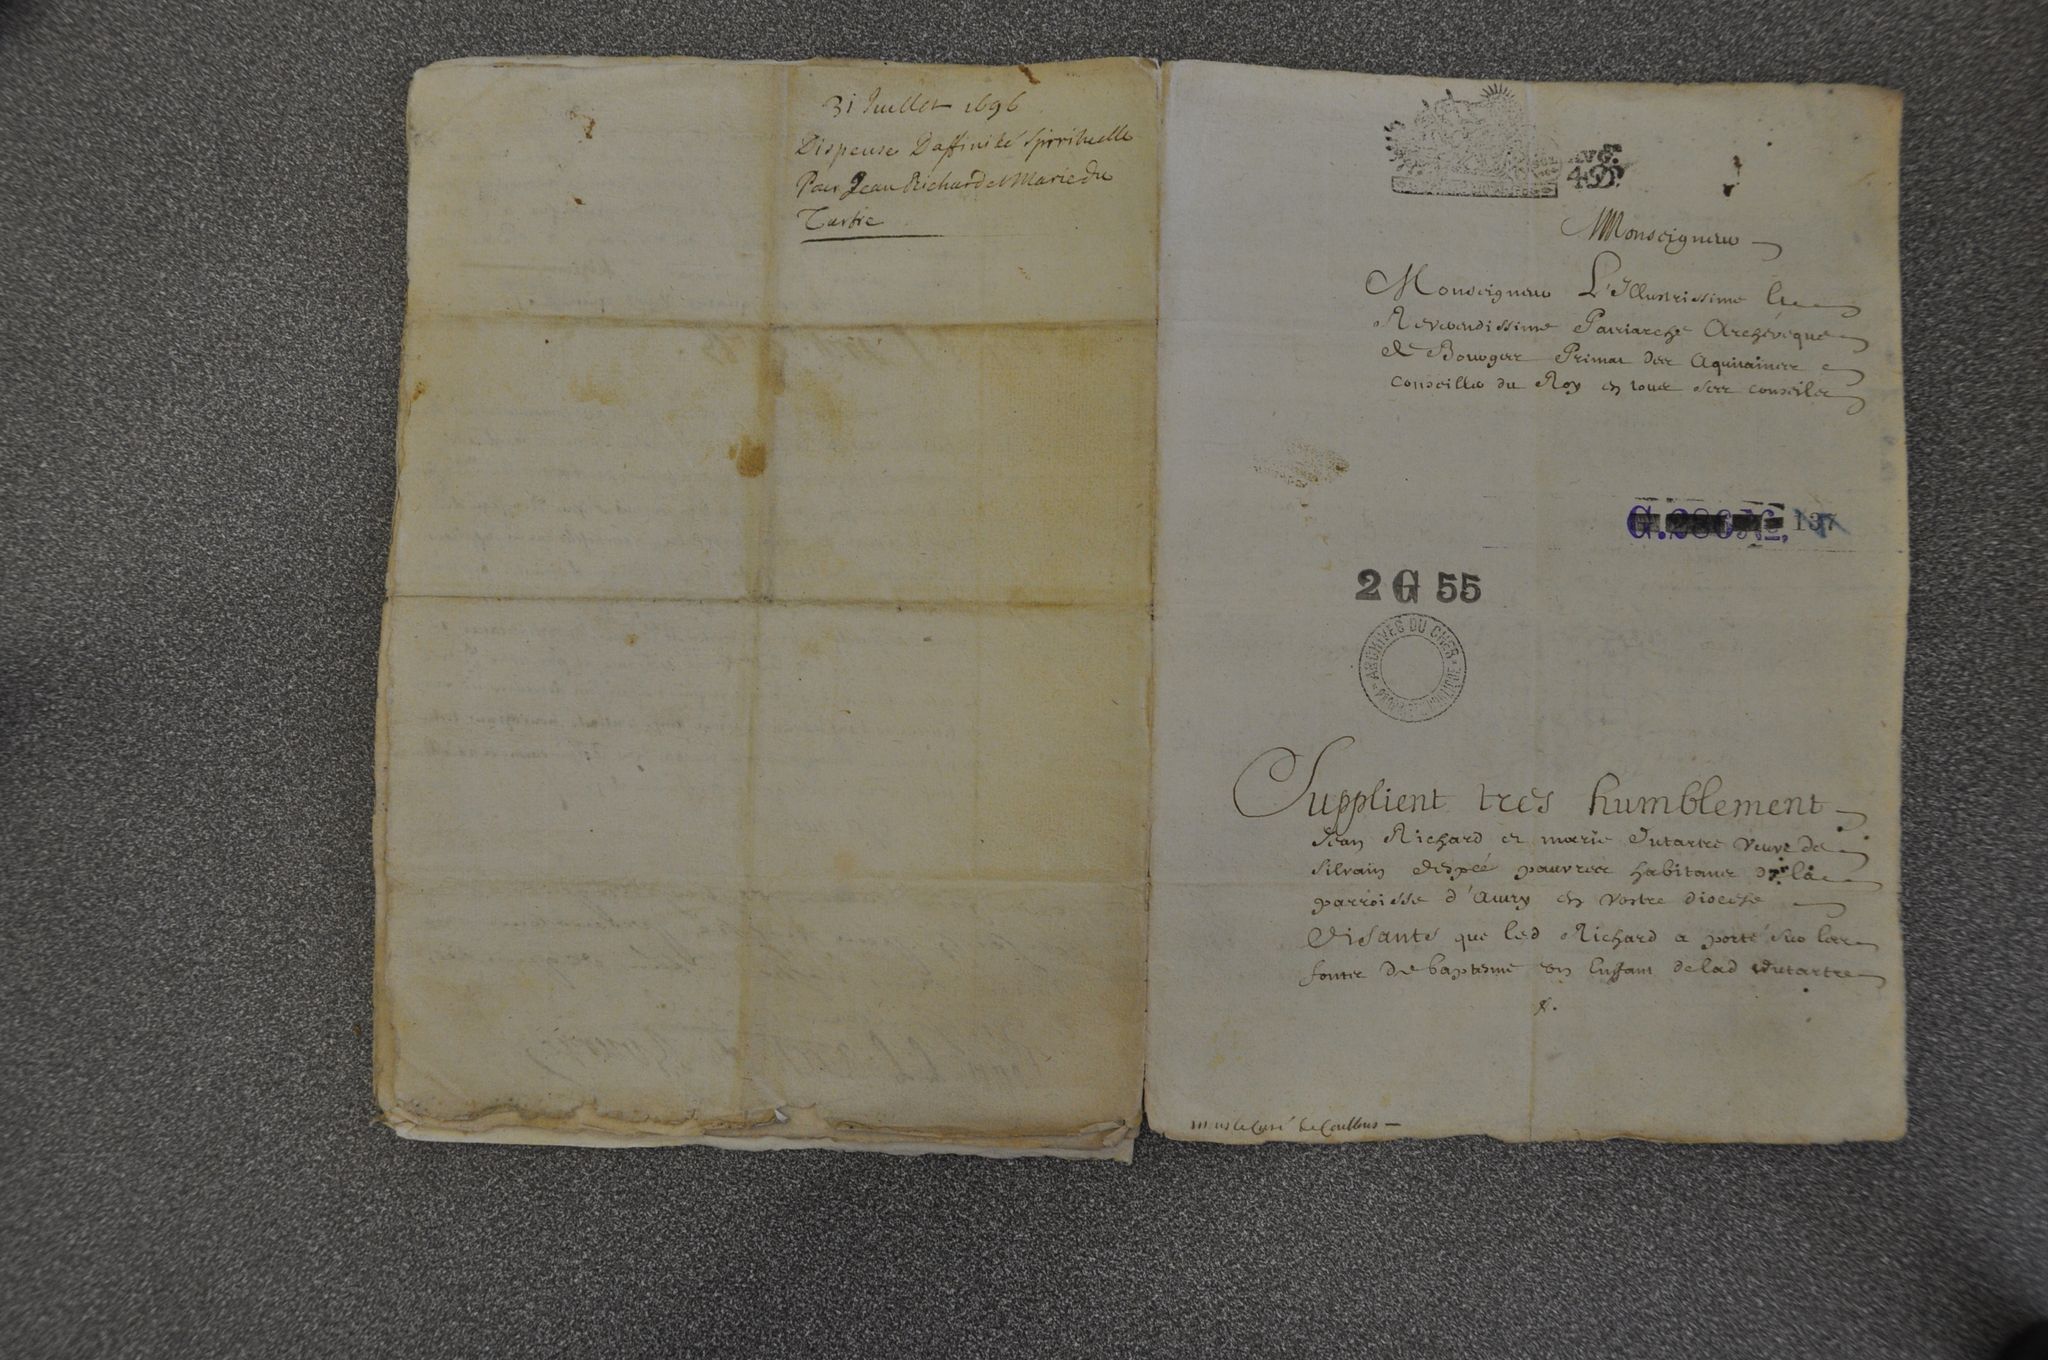 31 Juillet 1696
Dispense Daffinité Spirituelle
Pour Jean Richard et Marie du
Tartre
Monseigneur
Monseigneur L'Illustrissime Et
Reverendissime Patriarche Archevêque
de Bourges Primat des Aquitaines
Conseiller du Roy en tous ses conseils
G. 286 No. 137
2 G 55
ARCHIVES DU CHER
Supplient tres humblement
Jean Richard et marie Dutartre veuve de
Silvain pauvres habitans de la
parroisse d' en vostre diocese
Disants que led Richard a porté sur les
fonts de baptesme un Enfant de lad Dutartre
mr le Curé de Coullons